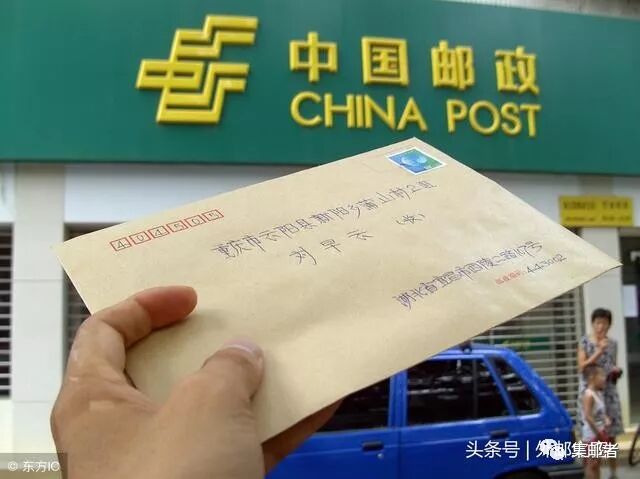 中国邮政
CHINA POST
404508
重庆市云阳县新阳乡蒲山村2组
刘早云（收）
湖北省宜昌市西陵二路117号
443002
头条号 / 外邮集邮者
© 东方IC